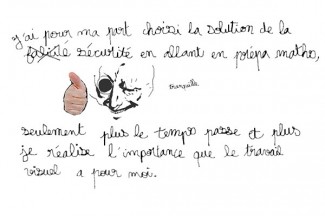 j'ai pour ma part choisi la solution de la
facilité sécurité en allant en prépa maths,
tranquille.
seulement plus le temps passe et plus
je réalise l'importance que le travail
visuel a pour moi.